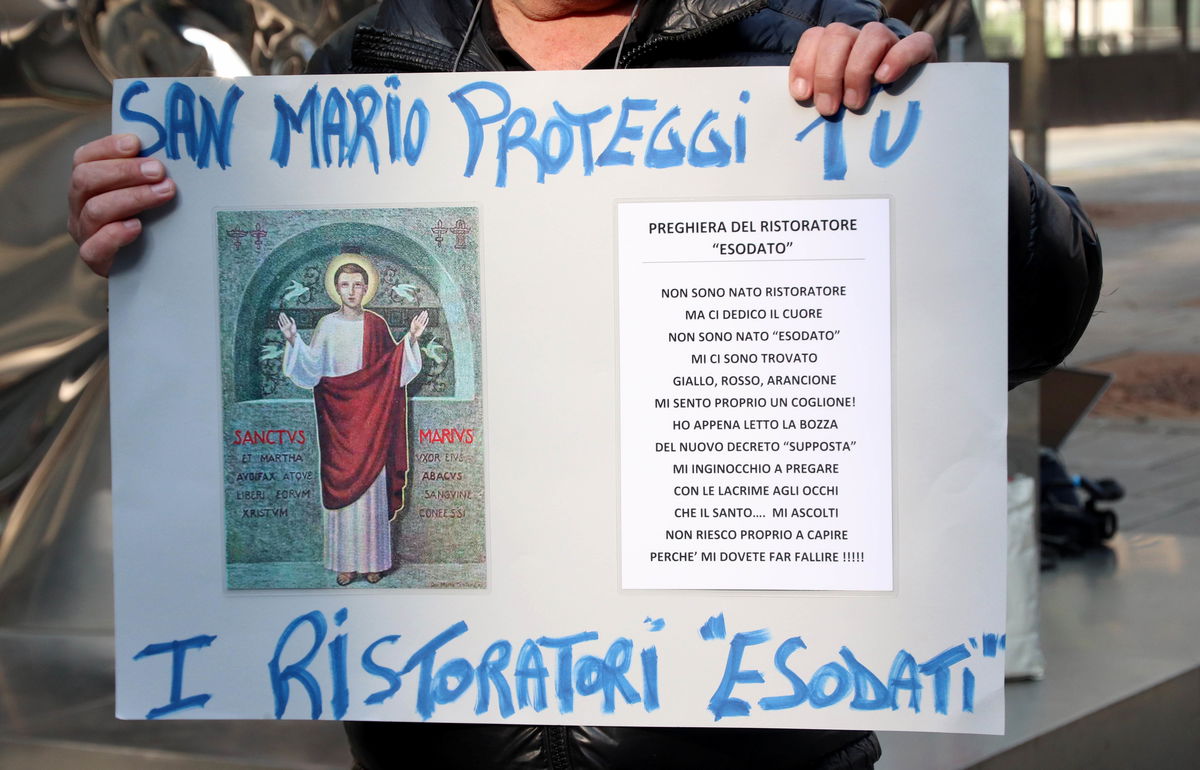 SAN MARIO PROTEGGI TU
SANCTVS MARIVS
ET MARTHA VXOR EIVS
AVDIFAX ATQVE ABACVS
LIBERI EORVM SANGVINE
XRISTVM CONFESSI
PREGHIERA DEL RISTORATORE
“ESODATO”
NON SONO NATO RISTORATORE
MA CI DEDICO IL CUORE
NON SONO NATO “ESODATO”
MI CI SONO TROVATO
GIALLO, ROSSO, ARANCIONE
MI SENTO PROPRIO UN COGLIONE!
HO APPENA LETTO LA BOZZA
DEL NUOVO DECRETO “SUPPOSTA”
MI INGINOCCHIO A PREGARE
CON LE LACRIME AGLI OCCHI
CHE IL SANTO.... MI ASCOLTI
NON RIESCO PROPRIO A CAPIRE
PERCHE’ MI DOVETE FAR FALLIRE !!!!!
I RISTORATORI "ESODATI"